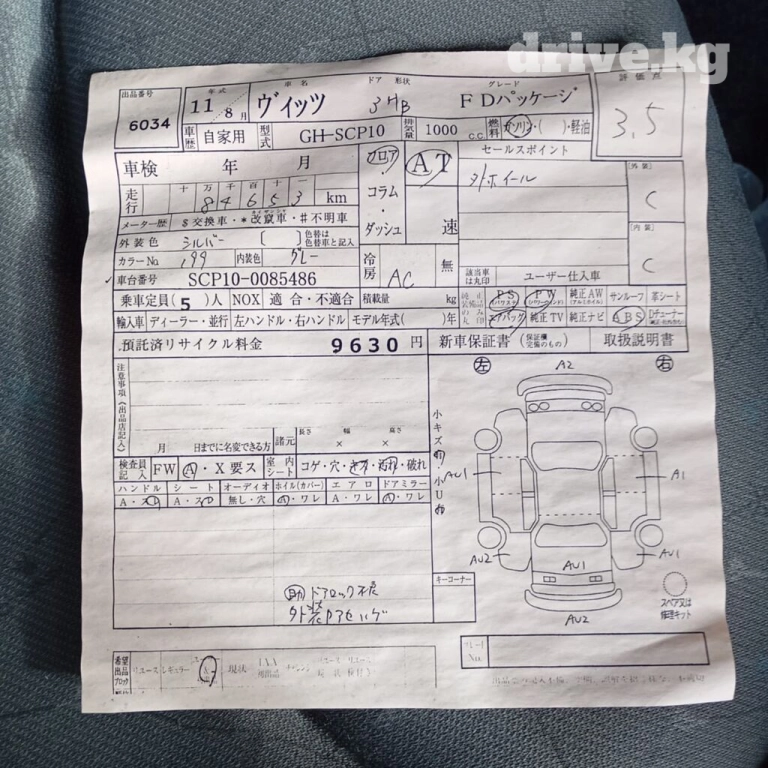 drive.kg
出品番号 年式 車名 ドア 形状 グレード 評価点
6034 11年 8月 ヴィッツ 3HB FDパッケージ 3,5
車歴 自家用 型式 GH-SCP10 排気量 1000 c.c. 燃料 ガソリン・( )・軽油
車検 年 月 フロア・コラム・ダッシュ AT 速 セールスポイント
外ホイール
[外装] C
[内装] C
走行 十万千百十一 84653 km
メーター歴 $交換車・*改竄車・#不明車
外装色 シルバー [ ] 色替は色替車と記入
カラーNo. 199 内装色 グレー 冷房 AC 無
該当車は丸印 ユーザー仕入車
車台番号 SCP10-0085486
乗車定員(5)人 NOX 適合・不適合 積載量 kg
PS (パワステ) PW (パワーウィンド) 純正AW (アルミホイル) サンルーフ 革シート
輸入車 ディーラー・並行 左ハンドル・右ハンドル モデル年式( )年
エアバッグ 純正TV 純正ナビ ABS Dチューナー
預託済リサイクル料金 9630円 新車保証書 (保証欄完備のもの) 取扱説明書
注意事項(出品店記入)
月 日までに名変できる方 諸元 長さ × 幅 × 高さ
検査員記入 FW A・X要ス 室内シート コゲ・穴・キズ・汚れ・破れ
ハンドル シート オーディオ ホイル(カバー) エアロ ドアミラー
A・スレ A・スレ 無し・穴 A・ワレ A・ワレ A・ワレ
助 ドアロック不良
左 右
A2
小キズ 小U
AU1 A1
AU2 AU1 AU1
AU2
キーコーナー
スペア又は修理キット
希望出品ブロック リユース レギュラー 現状